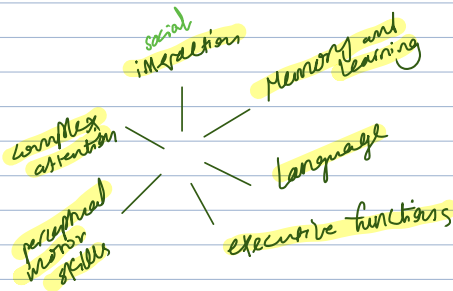 social
interaction
Memory and
Learning
complex
attention
Language
perceptual
motor
skills
executive functions